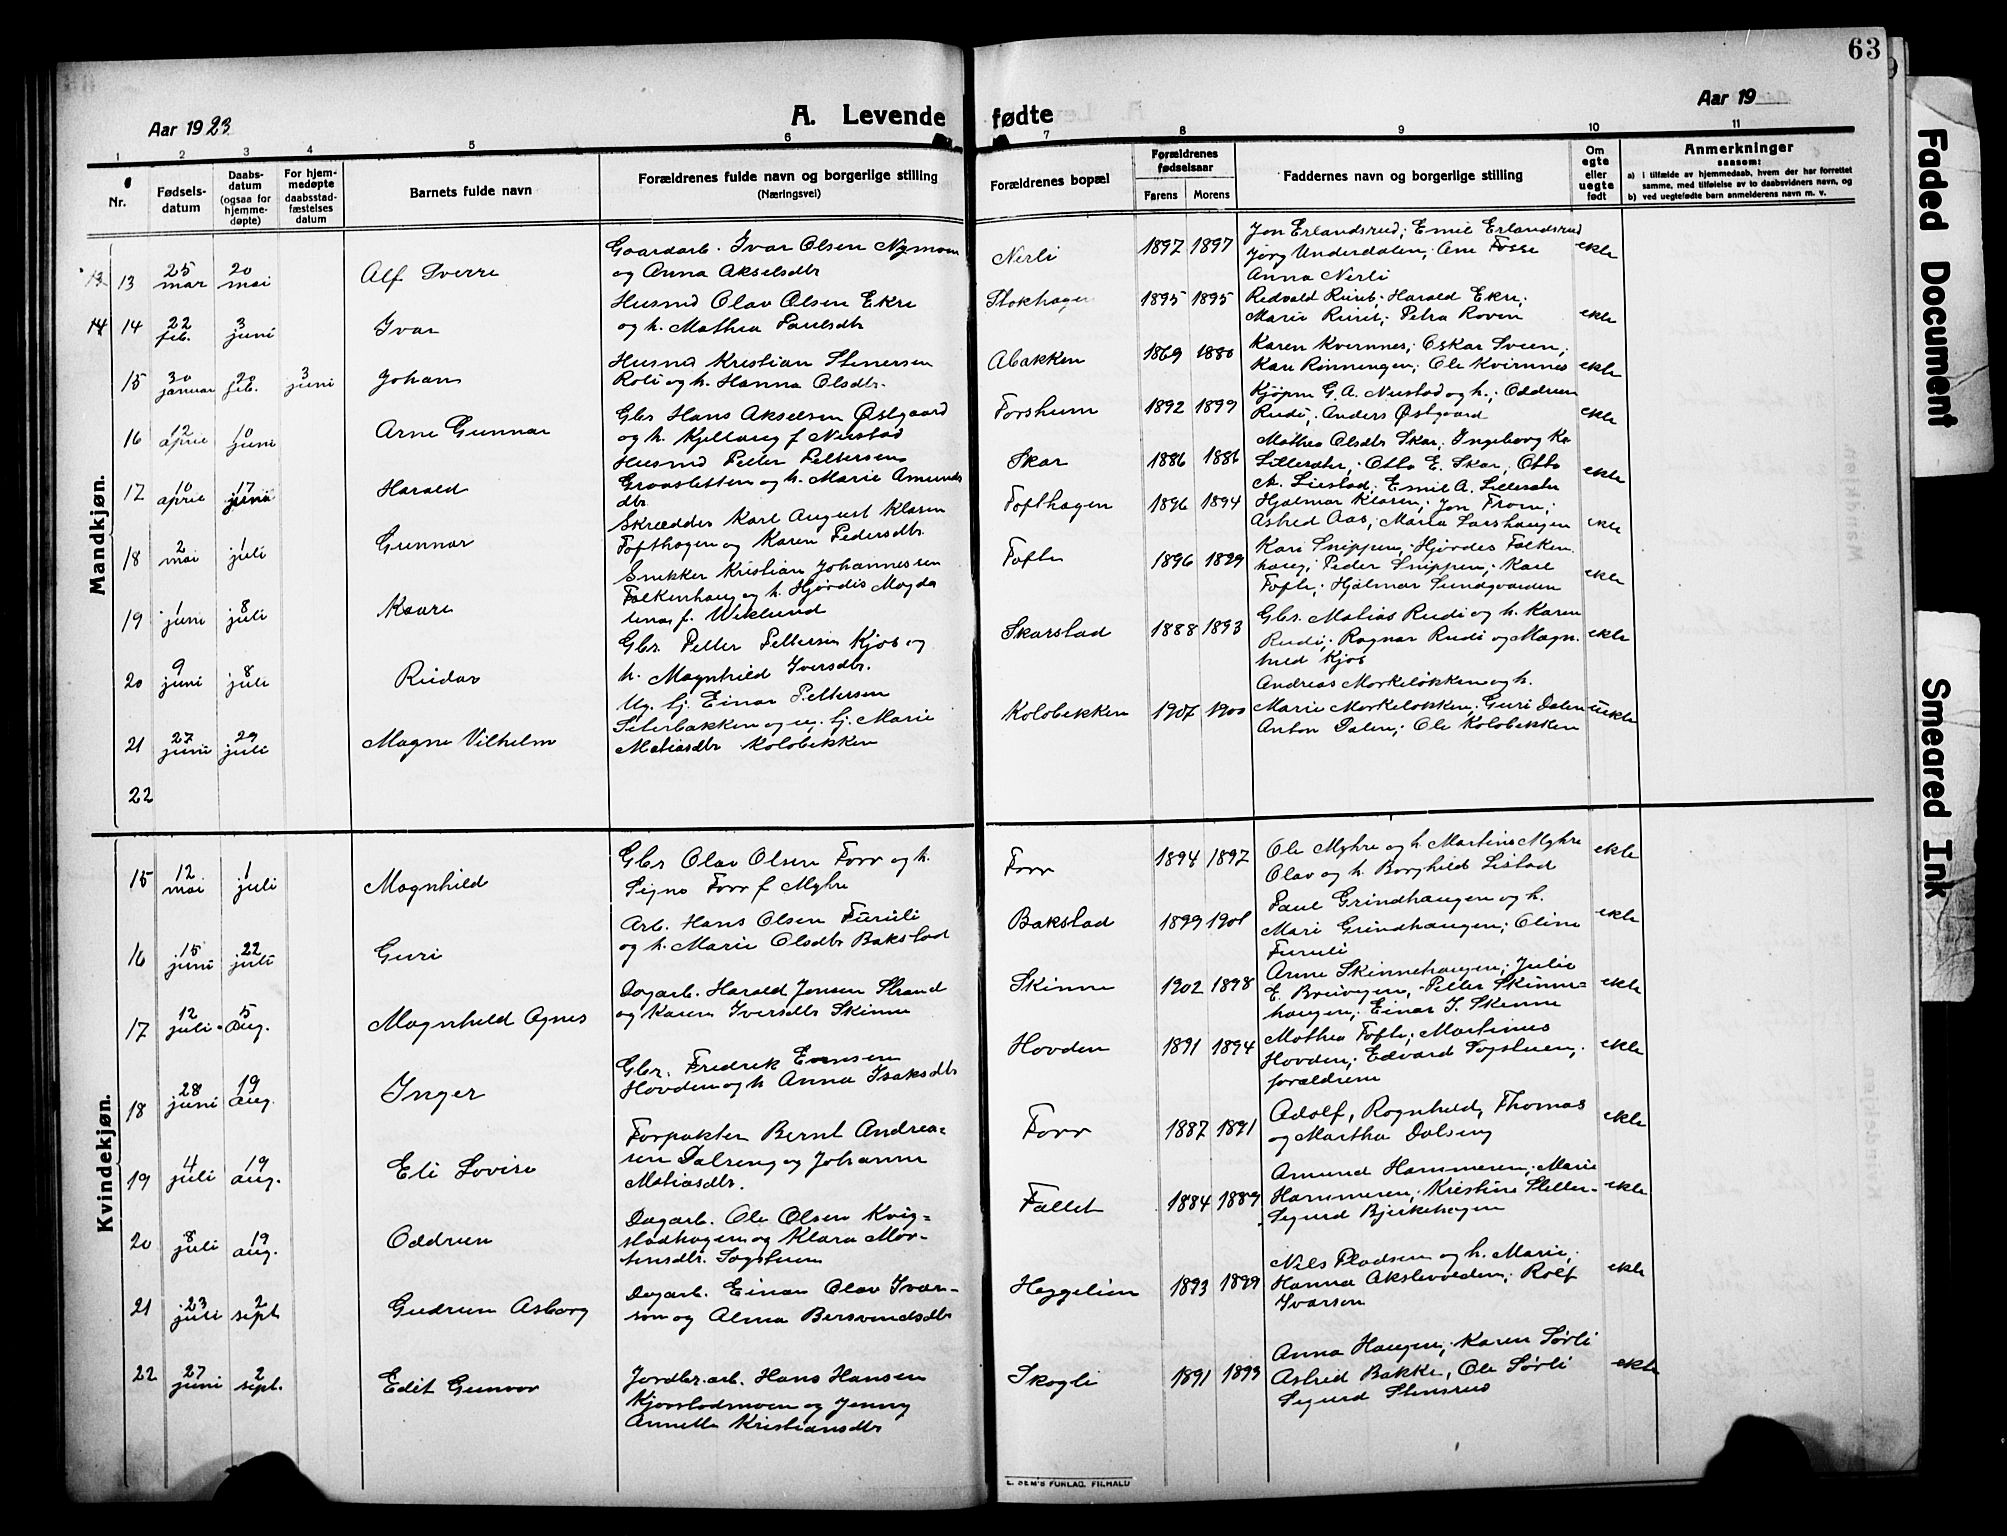 63
Faded Document
Smeared Ink
A. Levende fødte
Aar 1923
Aar 19
1 2 3 4 5 6 7 8 9 10 11
Nr.
Fødsels-
datum
Daabs-
datum
(ogsaa for
hjemme-
døpte)
For hjem-
medøpte
daabsstad-
fæstelses
datum
Barnets fulde navn
Forældrenes fulde navn og borgerlige stilling
(Næringsvei)
Forældrenes bopæl
Forældrenes
fødselsaar
Farens Morens
Faddernes navn og borgerlige stilling
Om
egte
eller
uegte
født
Anmerkninger
saasom:
a) i tilfælde av hjemmedaab, hvem der har forrettet
samme, med tilføielse av to daabsvidners navn, og
b) ved uegtefødte barn anmelderens navn m. v.
Mandkjøn.
13 13 25 mar 20 mai Alf Sverre
Gaardarb. Ivar Olsen Nymoen
og Anna Akselsdtr
Nerli 1897 1897
Jon Erlandsrud; Emil Erlandsrud
Jørg Underdalen; Ane Fosse
Anna Nerli
ekte
14 14 22 feb. 3 juni Ivar
Husmd Olav Olsen Ekre
og h. Mathea Paulsdtr
Stokhagen 1895 1895
Redvald Ruset; Harald Ekre;
Marie Ruset; Petra Roven
ekte
15 30 januar 20 feb. 3 juni Johan
Husmd Kristian Stenersen
Roli og h. Hanna Olsdtr.
Abakken 1869 1880
Karen Kvernnes; Oskar Sveen;
Kari Rønningen; Ole Kvernnes
ekte
16 12 april 10 juni Arne Gunnar
Gbr Hans Akselsen Østgaard
og h. Kjellaug f Neustad
Forshum 1892 1899
Kjøpm G. A. Neustad og h.; Oddrun
Rudi; Anders Østgaard
ekte
17 10 april 17 juni Harald
Husmd Peder Pettersen
Graasletten og h. Marie Amunds
dtr
Skar 1886 1886
Mathea Olsdtr Skar; Ingeborg K.
Lillesæter; Otto E. Skar, Otto
A. Liestad; Emil A. Lillesæter
ekte
18 2 mai 1 juli Gunnar
Skrædder Karl August Klasen
Tofthagen og Karen Pedersdtr.
Tofthagen 1896 1894
Hjalmar Klasen; Jon From;
Astrid Aas; Maria Larshaugen
ekte
19 1 juni 8 juli Kaare
Snekker Kristian Johannessen
Falkenhaug og h. Hjørdis Magda
lena f. Wiklund
Tofte 1896 1899
Kari Snippen; Hjørdes Falken
haug; Peder Snippen; Karl
Tofte; Hjalmar Sundgaarden
ekte
20 9 juni 8 juli Reidar
Gbr. Petter Pettersen Kjos og
h. Magnhild Iversdtr.
Skarstad 1888 1893
Gbr. Matias Rudi og h. Karen
Rudi; Ragnar Rudi og Magn-
hild Kjos
ekte
21 27 juni 29 juli Magne Vilhelm
Ug. tj. Einar Pettersen
Seterbakken og ug. tj. Marie
Matiasdtr Kolobekken
Kolobekken 1907 1900
Andreas Mørkeløkken og h.
Marie Mørkeløkken; Guri Dalen
Anton Dalen; Ole Kolobekken
uekte
22
Kvindekjøn.
15 12 mai 1 juli Magnhild
Gbr Olav Olsen Forr og h.
Signe Forr f Myhre
Forr 1894 1897
Ole Myhre og h Martine Myhre
Olav og h. Borghild Listad
ekte
16 15 juni 22 juli Guri
Arb. Hans Olsen Furuli
og h. Marie Olsdtr Bakstad
Bakstad 1899 1901
Paul Grindhaugen og h.
Mari Grindhaugen; Oline
Furuli
ekte
17 12 juli 5 aug. Magnhild Agnes
Dagarb. Harald Jensen Strand
og Karen Iversdtr Skinne
Skinne 1902 1898
Arne Skinnehaugen; Julie
E. Breivegen, Petter Skinne-
haugen; Einar I. Skinne
ekte
18 28 juni 19 aug. Inger
Gbr. Fredrik Evensen
Hovden og h Anna Isaksdtr
Hovden 1891 1894
Mathea Tofte; Martinus
Hovden; Edvard Sogstuen;
forældrene
ekte
19 4 juli 19 aug. Eli Lovise
Forpakter Bernt Andrea-
sen Dalseng og Johanne
Matiasdtr.
Forr 1887 1891
Adolf, Ragnhild, Thomas
og Martha Dalseng
ekte
20 8 juli 19 aug. Oddrun
Dagarb. Ole Olsen Kvig-
stadhagen og Klara Mor-
tensdtr. Sogstuen
Fallet 1884 1889
Amund Hammeren; Marie
Hammeren; Kristine Sletten-
Sigurd Bjerkehagen
ekte
21 23 juli 2 sept. Gudrun Asborg
Dagarb. Einar Olav Ivar-
son og Alma Bersvendsdtr
Heggelien 1893 1899
Nils Pladsen og h. Marie;
Hanna Akslevolden; Rolf
Ivarsen
ekte
22 27 juni 2 sept. Edit Gunvor
Jordbr.arb. Hans Hansen
Kjorstadmoen og Jenny
Annette Kristiansdtr
Skogli 1891 1893
Anna Haugen; Karen Sørli
Astrid Bakke, Ole Sørli
Sigurd Stensrud
ekte
E. SEM'S FORLAG, FR.HALD